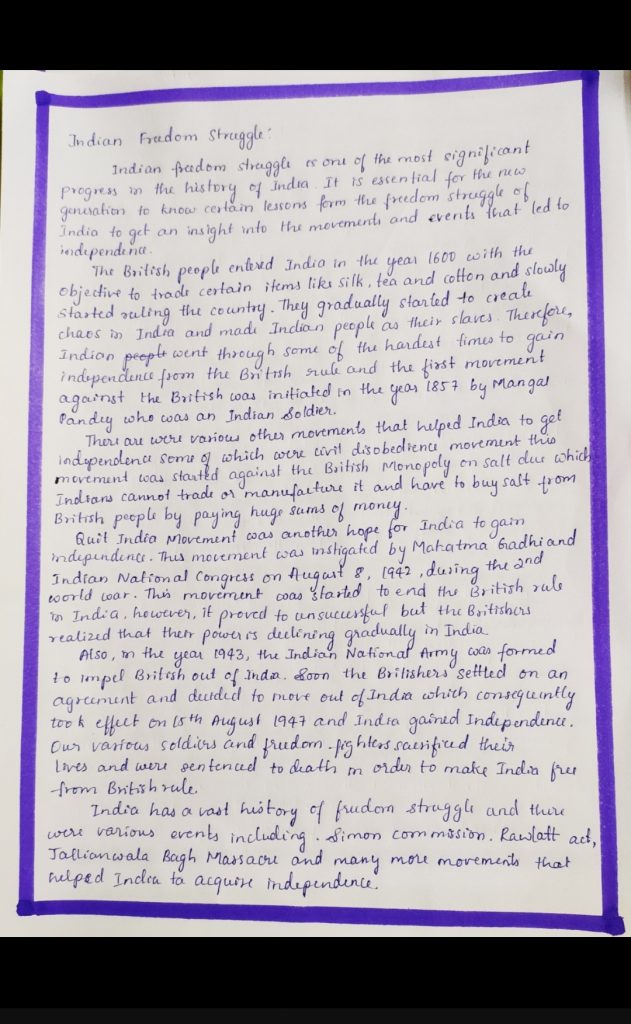 Indian Freedom Struggle:
Indian freedom struggle is one of the most significant
progress in the history of India. It is essential for the new
generation to know certain lessons form the freedom struggle of
India to get an insight into the movements and events that led to
independence.
The British people entered India in the year 1600 with the
objective to trade certain items like silk, tea and cotton and slowly
started ruling the country. They gradually started to create
chaos in India and made Indian people as their slaves. Therefore,
Indian people went through some of the hardest times to gain
independence from the British rule and the first movement
against the British was initiated in the year 1857 by Mangal
Pandey who was an Indian Soldier.
There are were various other movements that helped India to get
independence some of which were civil disobedience movement this
movement was started against the British Monopoly on salt due which
Indians cannot trade or manufacture it and have to buy salt from
British people by paying huge sums of money.
Quit India Movement was another hope for India to gain
independence. This movement was instigated by Mahatma Gadhi and
Indian National Congress on August 8, 1942, during the 2nd
world war. This movement was started to end the British rule
in India, however, it proved to unsuccessful but the Britishers
realized that their power is declining gradually in India.
Also, in the year 1943, the Indian National Army was formed
to impel British out of India. Soon the Britishers settled on an
agreement and decided to move out of India which consequently
took effect on 15th August 1947 and India gained Independence.
Our various soldiers and freedom-fighters sacrificed their
lives and were sentenced to death in order to make India free
from British rule.
India has a vast history of freedom struggle and there
were various events including. Simon commission. Rawlatt act,
Jallianwala Bagh Massacre and many more movements that
helped India to acquire independence.